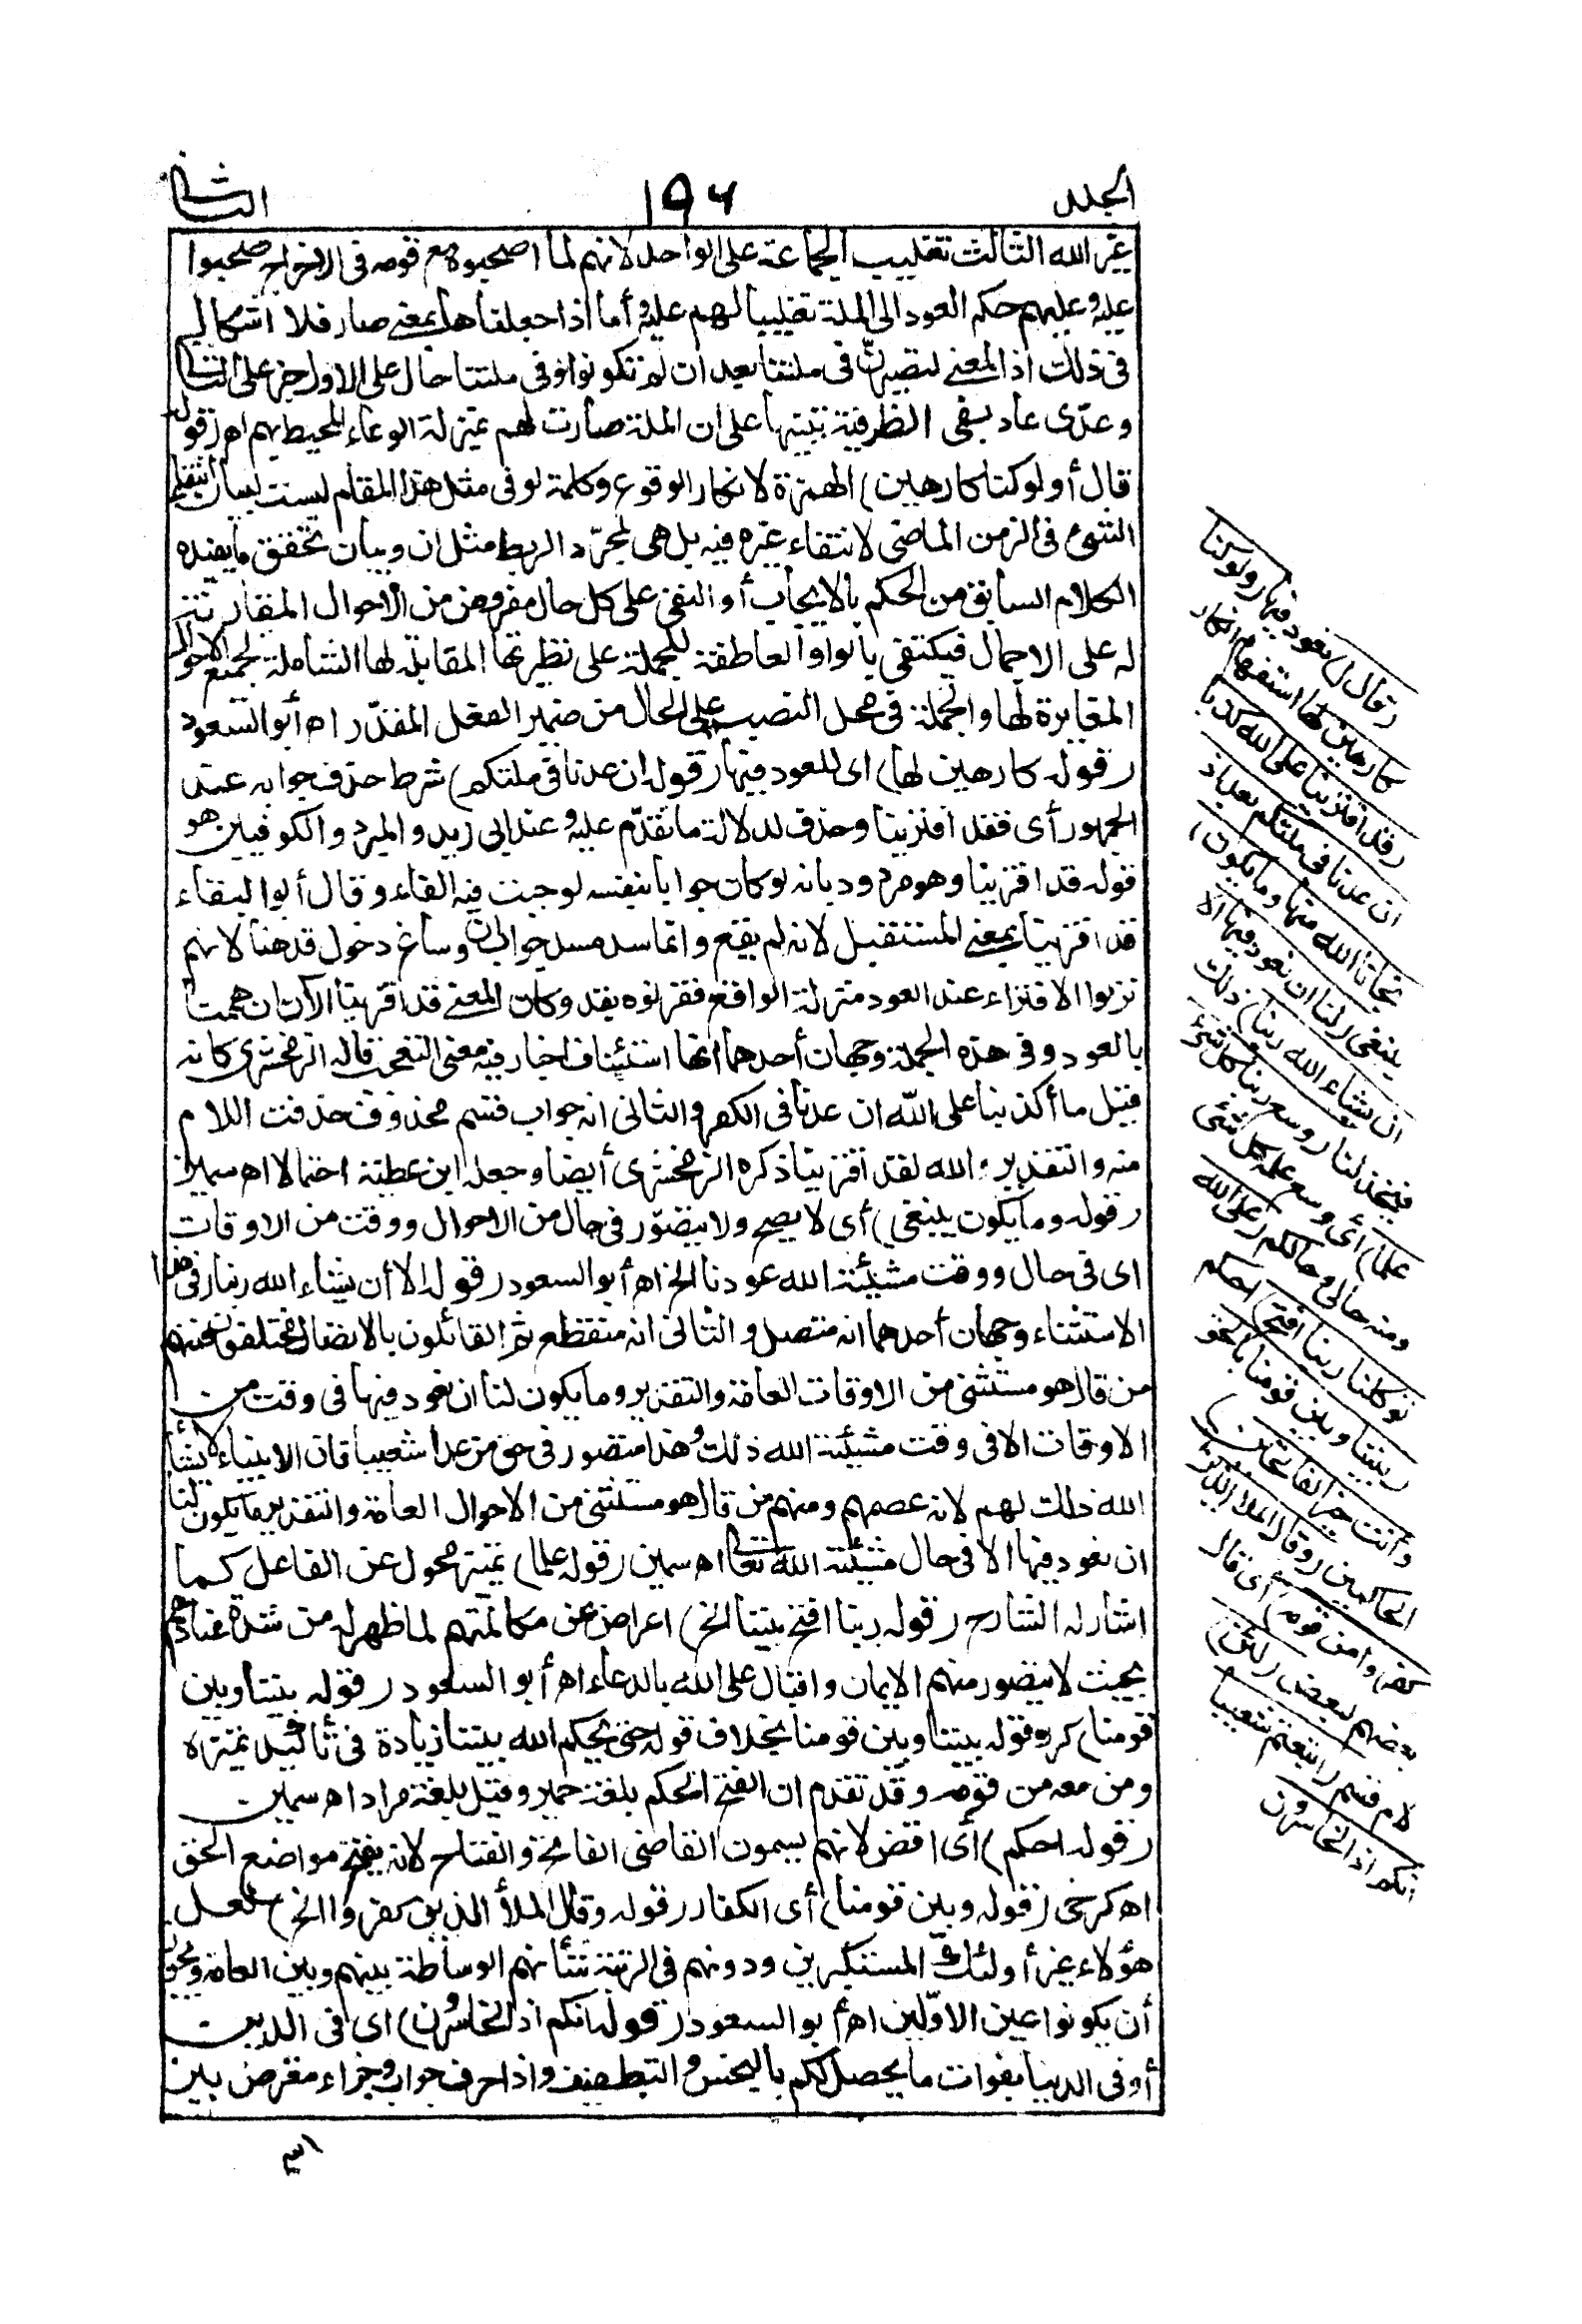 الجلد
١٩٦
الثانى
غير الله الثالث تغليب الجماعة على الواحد لانهم لما اصحبوه مع قومه فى الاخراج صحبوا
عليه وعليهم حكم العود الى الملة تغليبا لهم عليه وأما اذا جعلناها بمعنى صار فلا اشكال
فى ذلك اذ المعنى لتصيرن فى ملتنا بعد ان لم تكونوا وفى ملتنا حال على الاول خبر على الثانى
وعدّى عاد بفى الظرفية تنبيها على ان الملة صارت لهم بمنزلة الوعاء المحيط بهم اه (قوله
قال أولو كنا كارهين) الهمزة لانكار الوقوع وكلمة لو فى مثل هذا المقام ليست لبيان انتفاء
الشىء فى الزمن الماضى لانتفاء غيره فيه بل هى لمجرّد الربط مثل ان وبيان تحقق ما يفيده
الكلام السابق من الحكم بالايجاب أو النفى على كل حال مفروض من الاحوال المقارنة
له على الاجمال فيكتفى بالواو العاطفة للجملة على نظيرتها المقابلة لها الشاملة لجميع الاحوال
المغايرة لها والجملة فى محل النصب على الحال من ضمير الفعل المقدّر اه أبو السعود
(قوله كارهين لها) اى للعود فيها (قوله ان عدنا فى ملتكم) شرط حذف جوابه عند
الجمهور أى فقد افترينا وحذف لدلالة ما تقدّم عليه وعند ابى زيد والمبرد والكوفيين هو
قوله قد افترينا وهو مردود بانه لو كان جوابا بنفسه لوجبت فيه الفاء وقال أبو البقاء
قد افترينا بمعنى المستقبل لانه لم يقع وانما سد مسد جواب ان وساغ دخول قد هنا لانهم
نزلوا الافتراء عند العود منزلة الواقع فقرنوه بقد وكان المعنى قد افترينا الآن ان هممنا
بالعود وفى هذه الجملة وجهان أحدهما انها استئناف اخبار فيه معنى التعجب قاله الزمخشرى كانه
قيل ما أكذبنا على الله ان عدنا فى الكفر والثانى انه جواب قسم محذوف حذفت اللام
منه والتقدير والله لقد افترينا ذكره الزمخشرى أيضا وجعله ابن عطية احتمالا اه سمين
(قوله وما يكون ينبغى) أى لا يصح ولا يتصوّر فى حال من الاحوال ووقت من الاوقات
اى فى حال ووقت مشيئة الله عودنا الخ اه أبو السعود (قوله الا أن يشاء الله ربنا) فى هذا
الاستثناء وجهان أحدهما انه متصل والثانى انه منقطع ثم القائلون بالاتصال مختلفون فمنهم
من قال هو مستثنى من الاوقات العامة والتقدير وما يكون لنا ان نعود فيها فى وقت من
الاوقات الا فى وقت مشيئة الله ذلك وهذا متصور فى حق من عدا شعيبا فان الانبياء لا يشاء
الله ذلك لهم لانه عصمهم ومنهم من قال هو مستثنى من الاحوال العامة والتقدير ما يكون لنا
ان نعود فيها الا فى حال مشيئة الله تعالى اه سمين (قوله علما) تمييز محول عن الفاعل كما
اشار له الشارح (قوله ربنا افتح بيننا الخ) اعراض عن مكالمتهم لما ظهر له من شدة عنادهم
بحيث لا يتصور منهم الايمان واقبال على الله بالدعاء اه أبو السعود (قوله بيننا وبين
قومنا) كرر قوله بيننا وبين قومنا بخلاف قوله حتى يحكم الله بيننا زيادة فى تأكيد تمييزه
ومن معه من قومه وقد تقدم ان الفتح الحكم بلغة حمير وقيل بلغة مراد اه سمين
(قوله احكم) أى اقض لانهم يسمون القاضى الفاتح والفتاح لانه يفتح مواضع الحق
اه كرخى (قوله وبين قومنا) أى الكفار (قوله وقال الملأ الذين كفروا الخ) لعل
هؤلاء غير أولئك المستكبرين ودونهم فى الرتبة شأنهم الوساطة بينهم وبين العامة ويجوز
أن يكونوا عين الاوّلين اه أبو السعود (قوله انكم اذا لخاسرون) اى فى الدين
أو فى الدنيا بفوات ما يحصل لكم بالبخس والتطفيف واذا حرف جواب وجزاء معترض بين
(قال) نعود فيها (ولو كنا
كارهين) لها استفهام انكار
(قد افترينا على الله كذبا
ان عدنا فى ملتكم بعد اذ
نجانا الله منها وما يكون)
ينبغى (لنا ان نعود فيها الا
ان يشاء الله ربنا) ذلك
فيخذلنا (وسع ربنا كل شىء
علما) أى وسع علمه كل شىء
ومنه حالى وحالكم (على الله
توكلنا ربنا افتح) احكم
(بيننا وبين قومنا بالحق
وأنت خير الفاتحين)
الحاكمين (وقال الملأ الذين
كفروا من قومه) أى قال
بعضهم لبعض (لئن)
لام قسم (اتبعتم شعيبا
انكم اذا لخاسرون